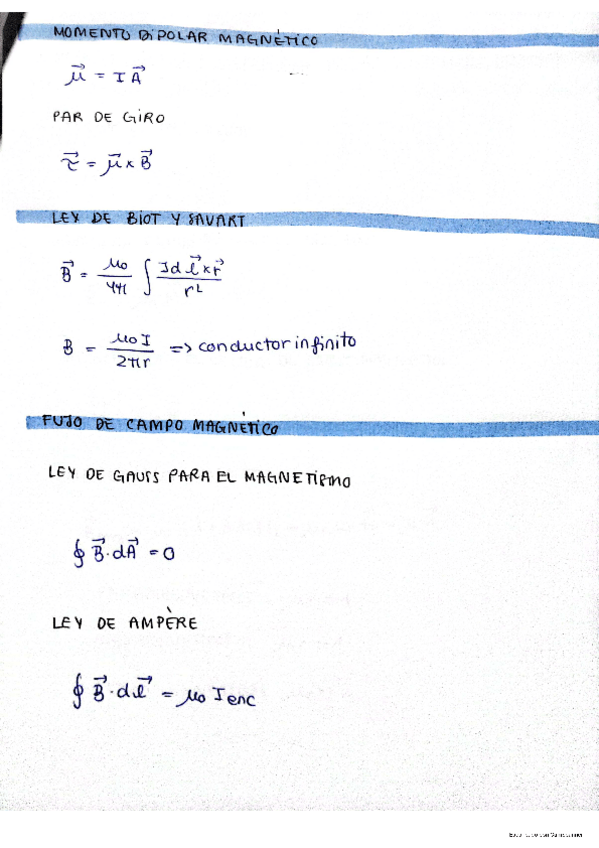 MOMENTO DIPOLAR MAGNÉTICO
μ⃗ = I A⃗
PAR DE GIRO
τ⃗ = μ⃗ x B⃗
LEY DE BIOT Y SAVART
B⃗ = μ₀/4π ∫ I d l⃗ x r⃗ / r²
B = μ₀ I / 2πr => conductor infinito
FUJO DE CAMPO MAGNÉTICO
LEY DE GAUSS PARA EL MAGNETISMO
∮ B⃗ · dA⃗ = 0
LEY DE AMPÈRE
∮ B⃗ · d l⃗ = μ₀ I enc